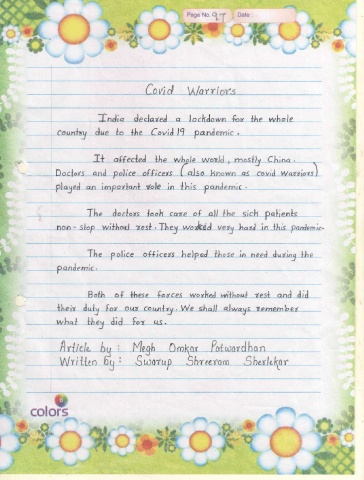 Page No. 
Date :
Covid Warriors
India declared a lockdown for the whole
country due to the Covid 19 pandemic.
It affected the whole world, mostly China.
Doctors and police officers (also known as covid warriors)
played an important role in this pandemic.
The doctors took care of all the sick patients
non-stop without rest. They worked very hard in this pandemic.
The police officers helped those in need during the
pandemic.
Both of these forces worked without rest and did
their duty for our country. We shall always remember
what they did for us.
Article by : Megh Omkar Patwardhan
Written by : Swarup Shreeram Sherlekar
colors